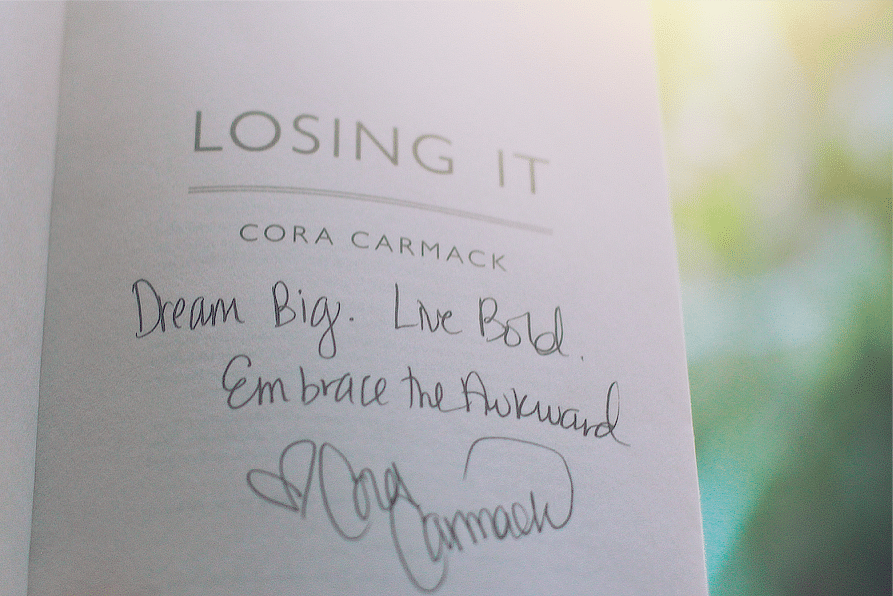 LOSING IT
CORA CARMACK
Dream Big. Live Bold.
Embrace the Awkward
Cora Carmack